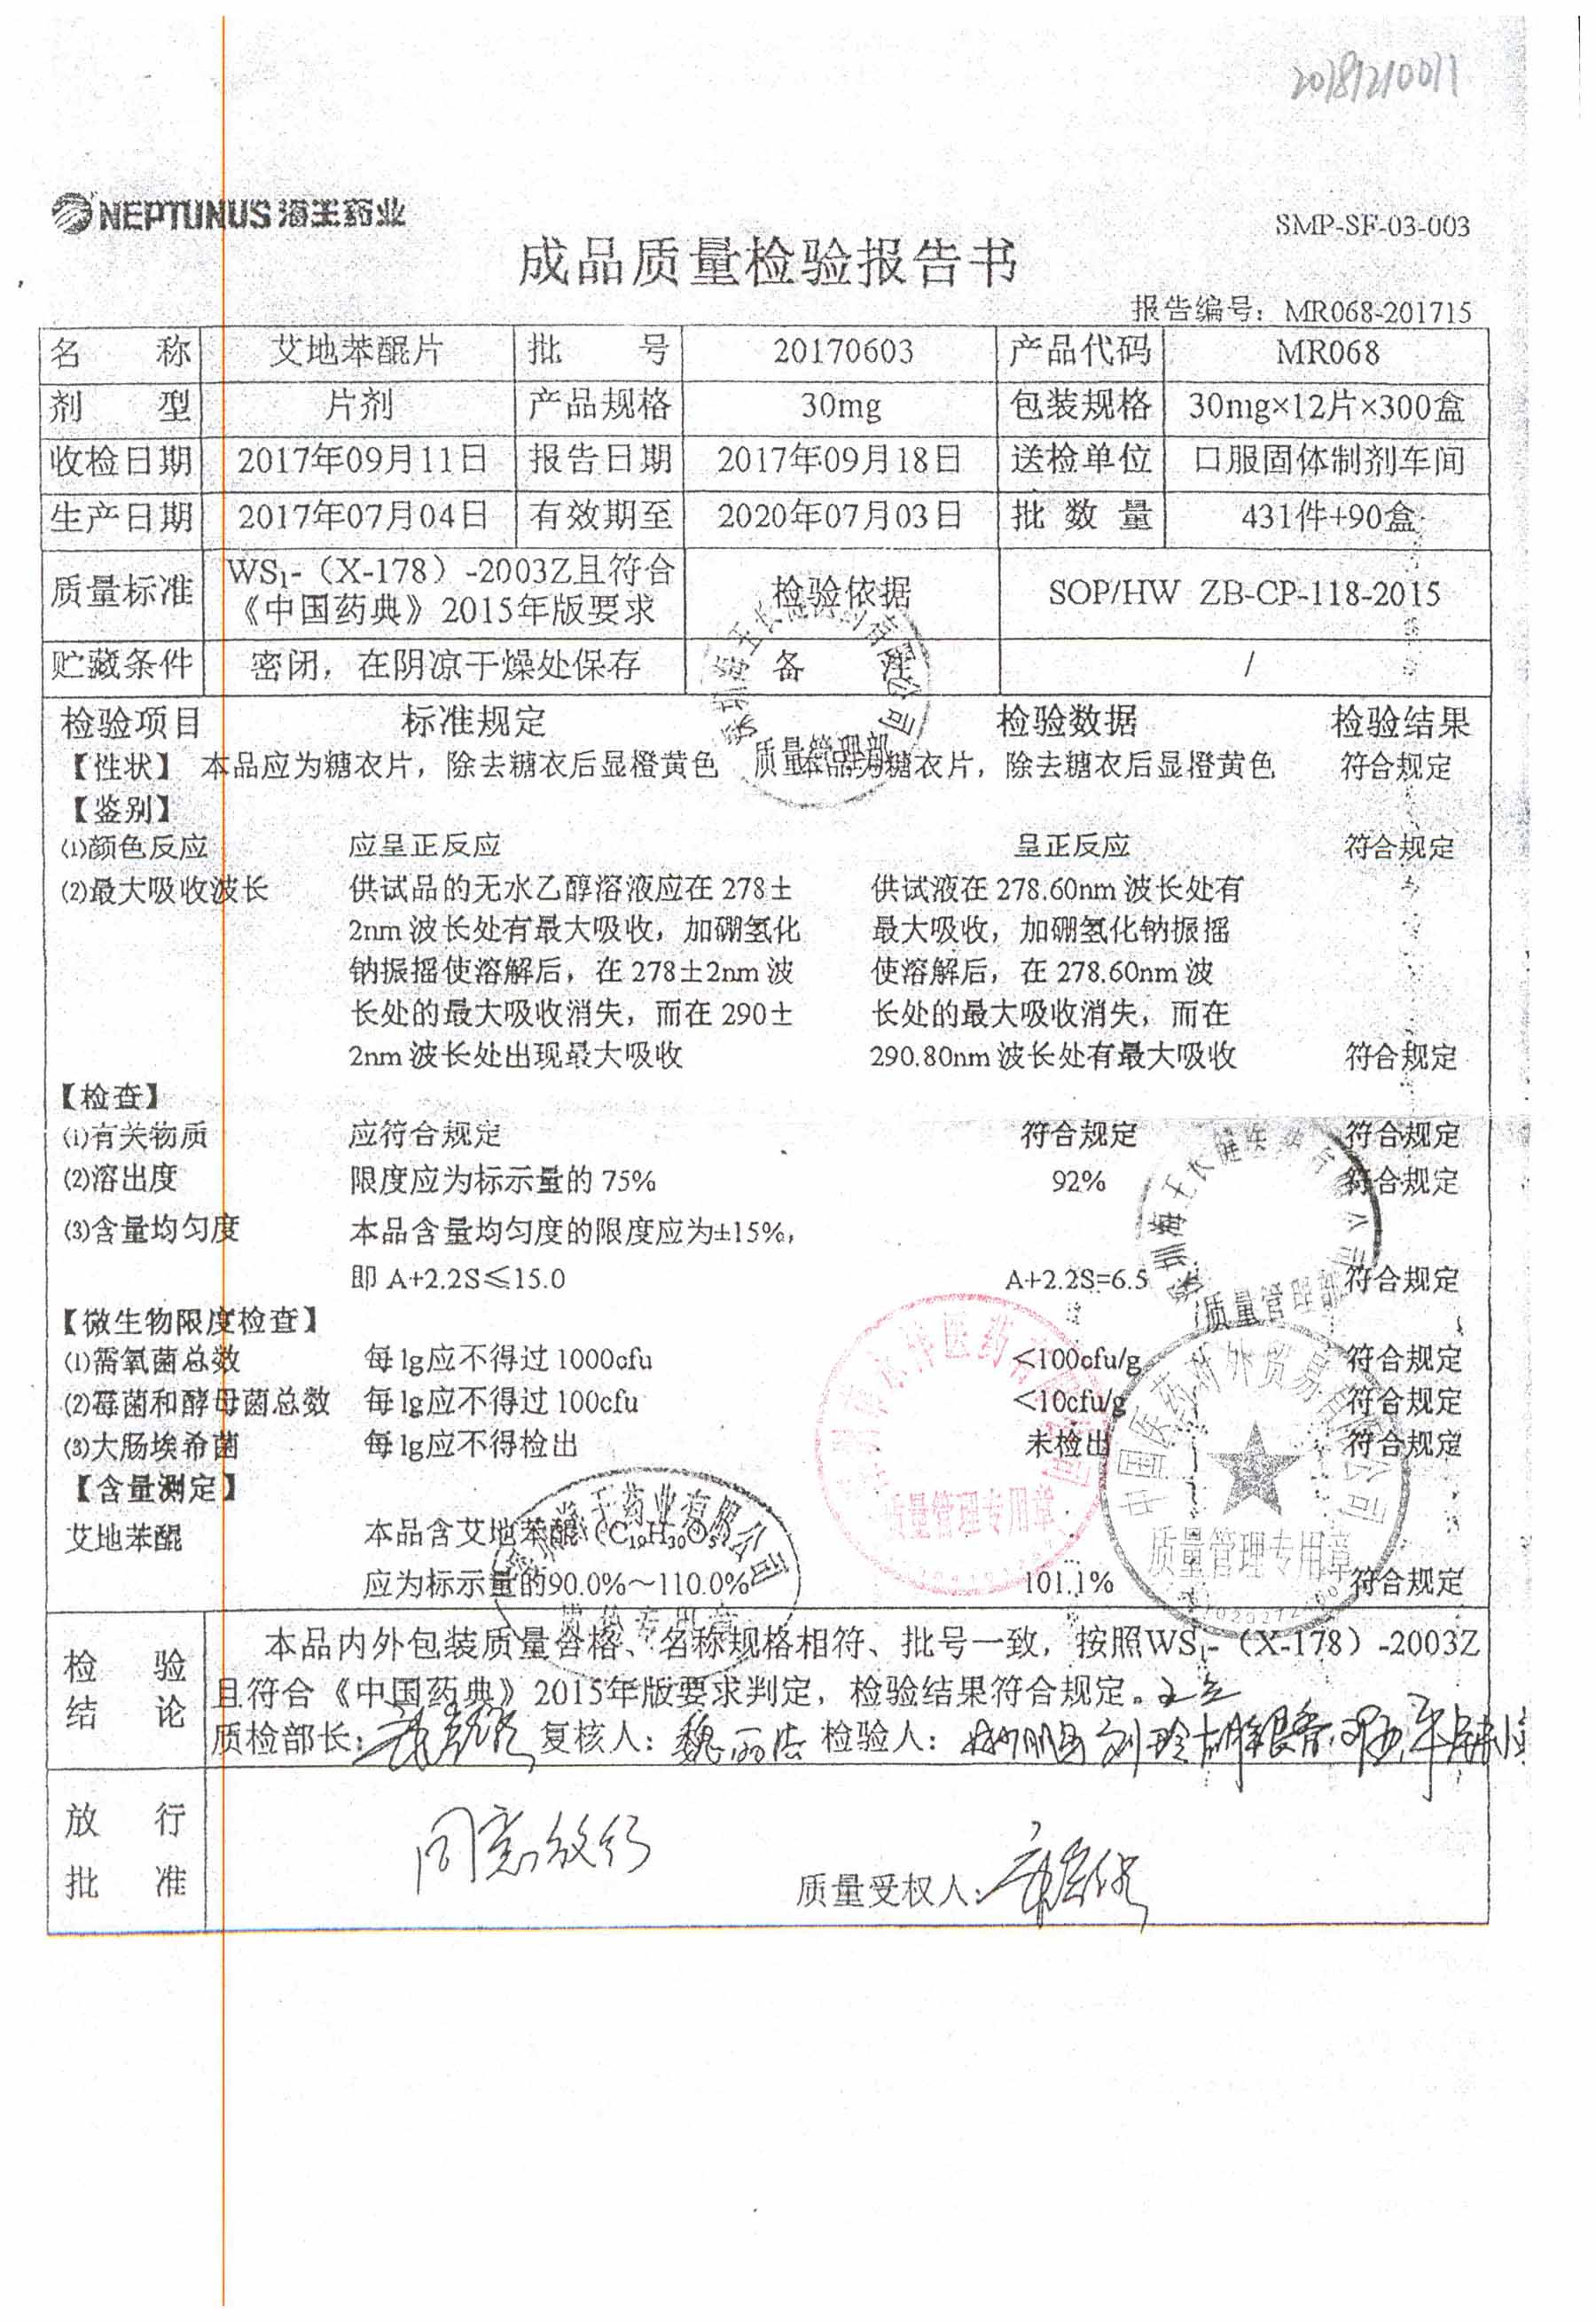 20181210011
NEPTUNUS 海王药业
SMP-SF-03-003
成品质量检验报告书
报告编号：MR068-201715
名 称 艾地苯醌片 批 号 20170603 产品代码 MR068
剂 型 片剂 产品规格 30mg 包装规格 30mg×12片×300盒
收检日期 2017年09月11日 报告日期 2017年09月18日 送检单位 口服固体制剂车间
生产日期 2017年07月04日 有效期至 2020年07月03日 批 数 量 431件+90盒
质量标准 WS₁-（X-178）-2003Z且符合《中国药典》2015年版要求 检验依据 SOP/HW ZB-CP-118-2015
贮藏条件 密闭，在阴凉干燥处保存 备 注 /
检验项目 标准规定 检验数据 检验结果
【性状】 本品应为糖衣片，除去糖衣后显橙黄色 本品为糖衣片，除去糖衣后显橙黄色 符合规定
【鉴别】
⑴颜色反应 应呈正反应 呈正反应 符合规定
⑵最大吸收波长 供试品的无水乙醇溶液应在 278± 供试液在 278.60nm 波长处有
2nm 波长处有最大吸收，加硼氢化 最大吸收，加硼氢化钠振摇
钠振摇使溶解后，在 278±2nm 波 使溶解后，在 278.60nm 波
长处的最大吸收消失，而在 290± 长处的最大吸收消失，而在
2nm 波长处出现最大吸收 290.80nm 波长处有最大吸收 符合规定
【检查】
⑴有关物质 应符合规定 符合规定 符合规定
⑵溶出度 限度应为标示量的 75% 92% 符合规定
⑶含量均匀度 本品含量均匀度的限度应为±15%，
即 A+2.2S≤15.0 A+2.2S=6.5 符合规定
【微生物限度检查】
⑴需氧菌总数 每1g应不得过 1000cfu <100cfu/g 符合规定
⑵霉菌和酵母菌总数 每1g应不得过 100cfu <10cfu/g 符合规定
⑶大肠埃希菌 每1g应不得检出 未检出 符合规定
【含量测定】
艾地苯醌 本品含艾地苯醌（C₁₉H₃₀O₅）
应为标示量的90.0%～110.0% 101.1% 符合规定
检 验 结 论
本品内外包装质量合格、名称规格相符、批号一致，按照WS₁-（X-178）-2003Z
且符合《中国药典》2015年版要求判定，检验结果符合规定。
质检部长： 复核人： 检验人：
放 行 批 准
同意放行
质量受权人：
质量管理部
质量管理部
质量管理专用章
中国医药对外贸易有限公司
质量管理专用章